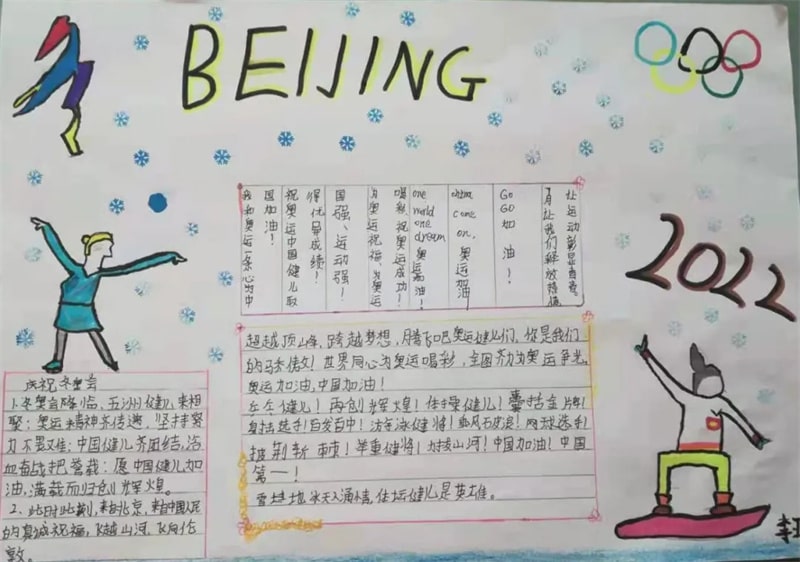 BEIJING
我和奥运一条心为中
国加油！
祝奥运中国健儿取
得优异成绩！
国强、运动强！
为奥运祝福、为奥运
喝彩，祝奥运成功！
one world one dream 奥运加油！
china come on, 奥运加油！
GO GO 加油！
让运动彰显青春。
让我们释放热情
2022
超越顶峰、跨越梦想，腾飞吧奥运健儿们、你是我们
的骄傲！世界同心为奥运喝彩，全国齐力为奥运争光。
奥运加油，中国加油！
健儿！再创辉煌！体操健儿！囊括金牌！
射击选手！百发百中！健将！乘风破浪！网球选手！
披荆斩棘！举重健将！力拔山河！中国加油！中国
第一！
冰天涌情，体坛健儿是英雄。
庆祝冬奥会
1.冬奥会降临，五洲健儿来相
聚；奥运精神齐传递，坚持努
力不畏难；中国健儿齐团结，浴
血奋战把营载；愿中国健儿加
油，满载而归创辉煌。
2.此时此刻，来自北京，来自中国人民
的真诚祝福，飞越山河、飞向伦
敦。